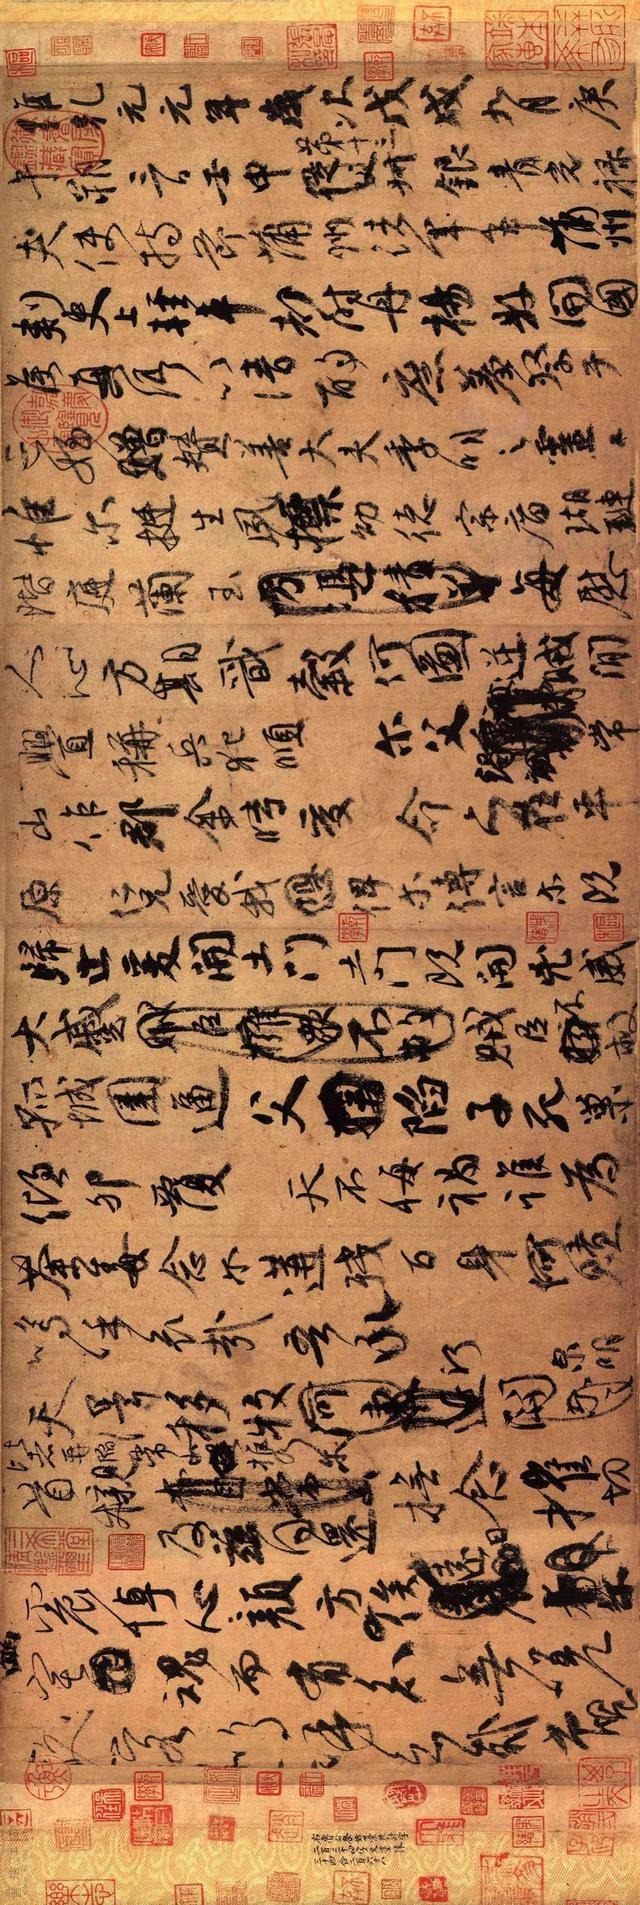 維乾元元年歲次戊戌九月庚
午朔三日壬申第十三叔銀青光祿
夫使持節蒲州諸軍事蒲州
刺史上輕車都尉丹楊縣開國
侯真卿以清酌庶羞祭于
亡姪贈贊善大夫季明之靈
惟爾挺生夙標幼德宗廟瑚璉
階庭蘭玉方憑積善每慰
人心方期戩穀何圖逆賊閒
釁稱兵犯順爾父常
山作郡余時受命亦在平
原仁兄愛我俾爾傳言爾既
歸止爰開土門土門既開兇威
大蹙賊臣擁眾不救賊臣不救
孤城圍逼父陷子死巢
傾卵覆天不悔禍誰為
荼毒念爾遘殘百身何贖
嗚呼哀哉吾承
天澤移牧河關泉明
比者再陷常山攜爾
首櫬及茲同還撫念摧切
震悼心顏方俟遠日
爾幽宅魂而有知無嗟
久客嗚呼哀哉尚饗